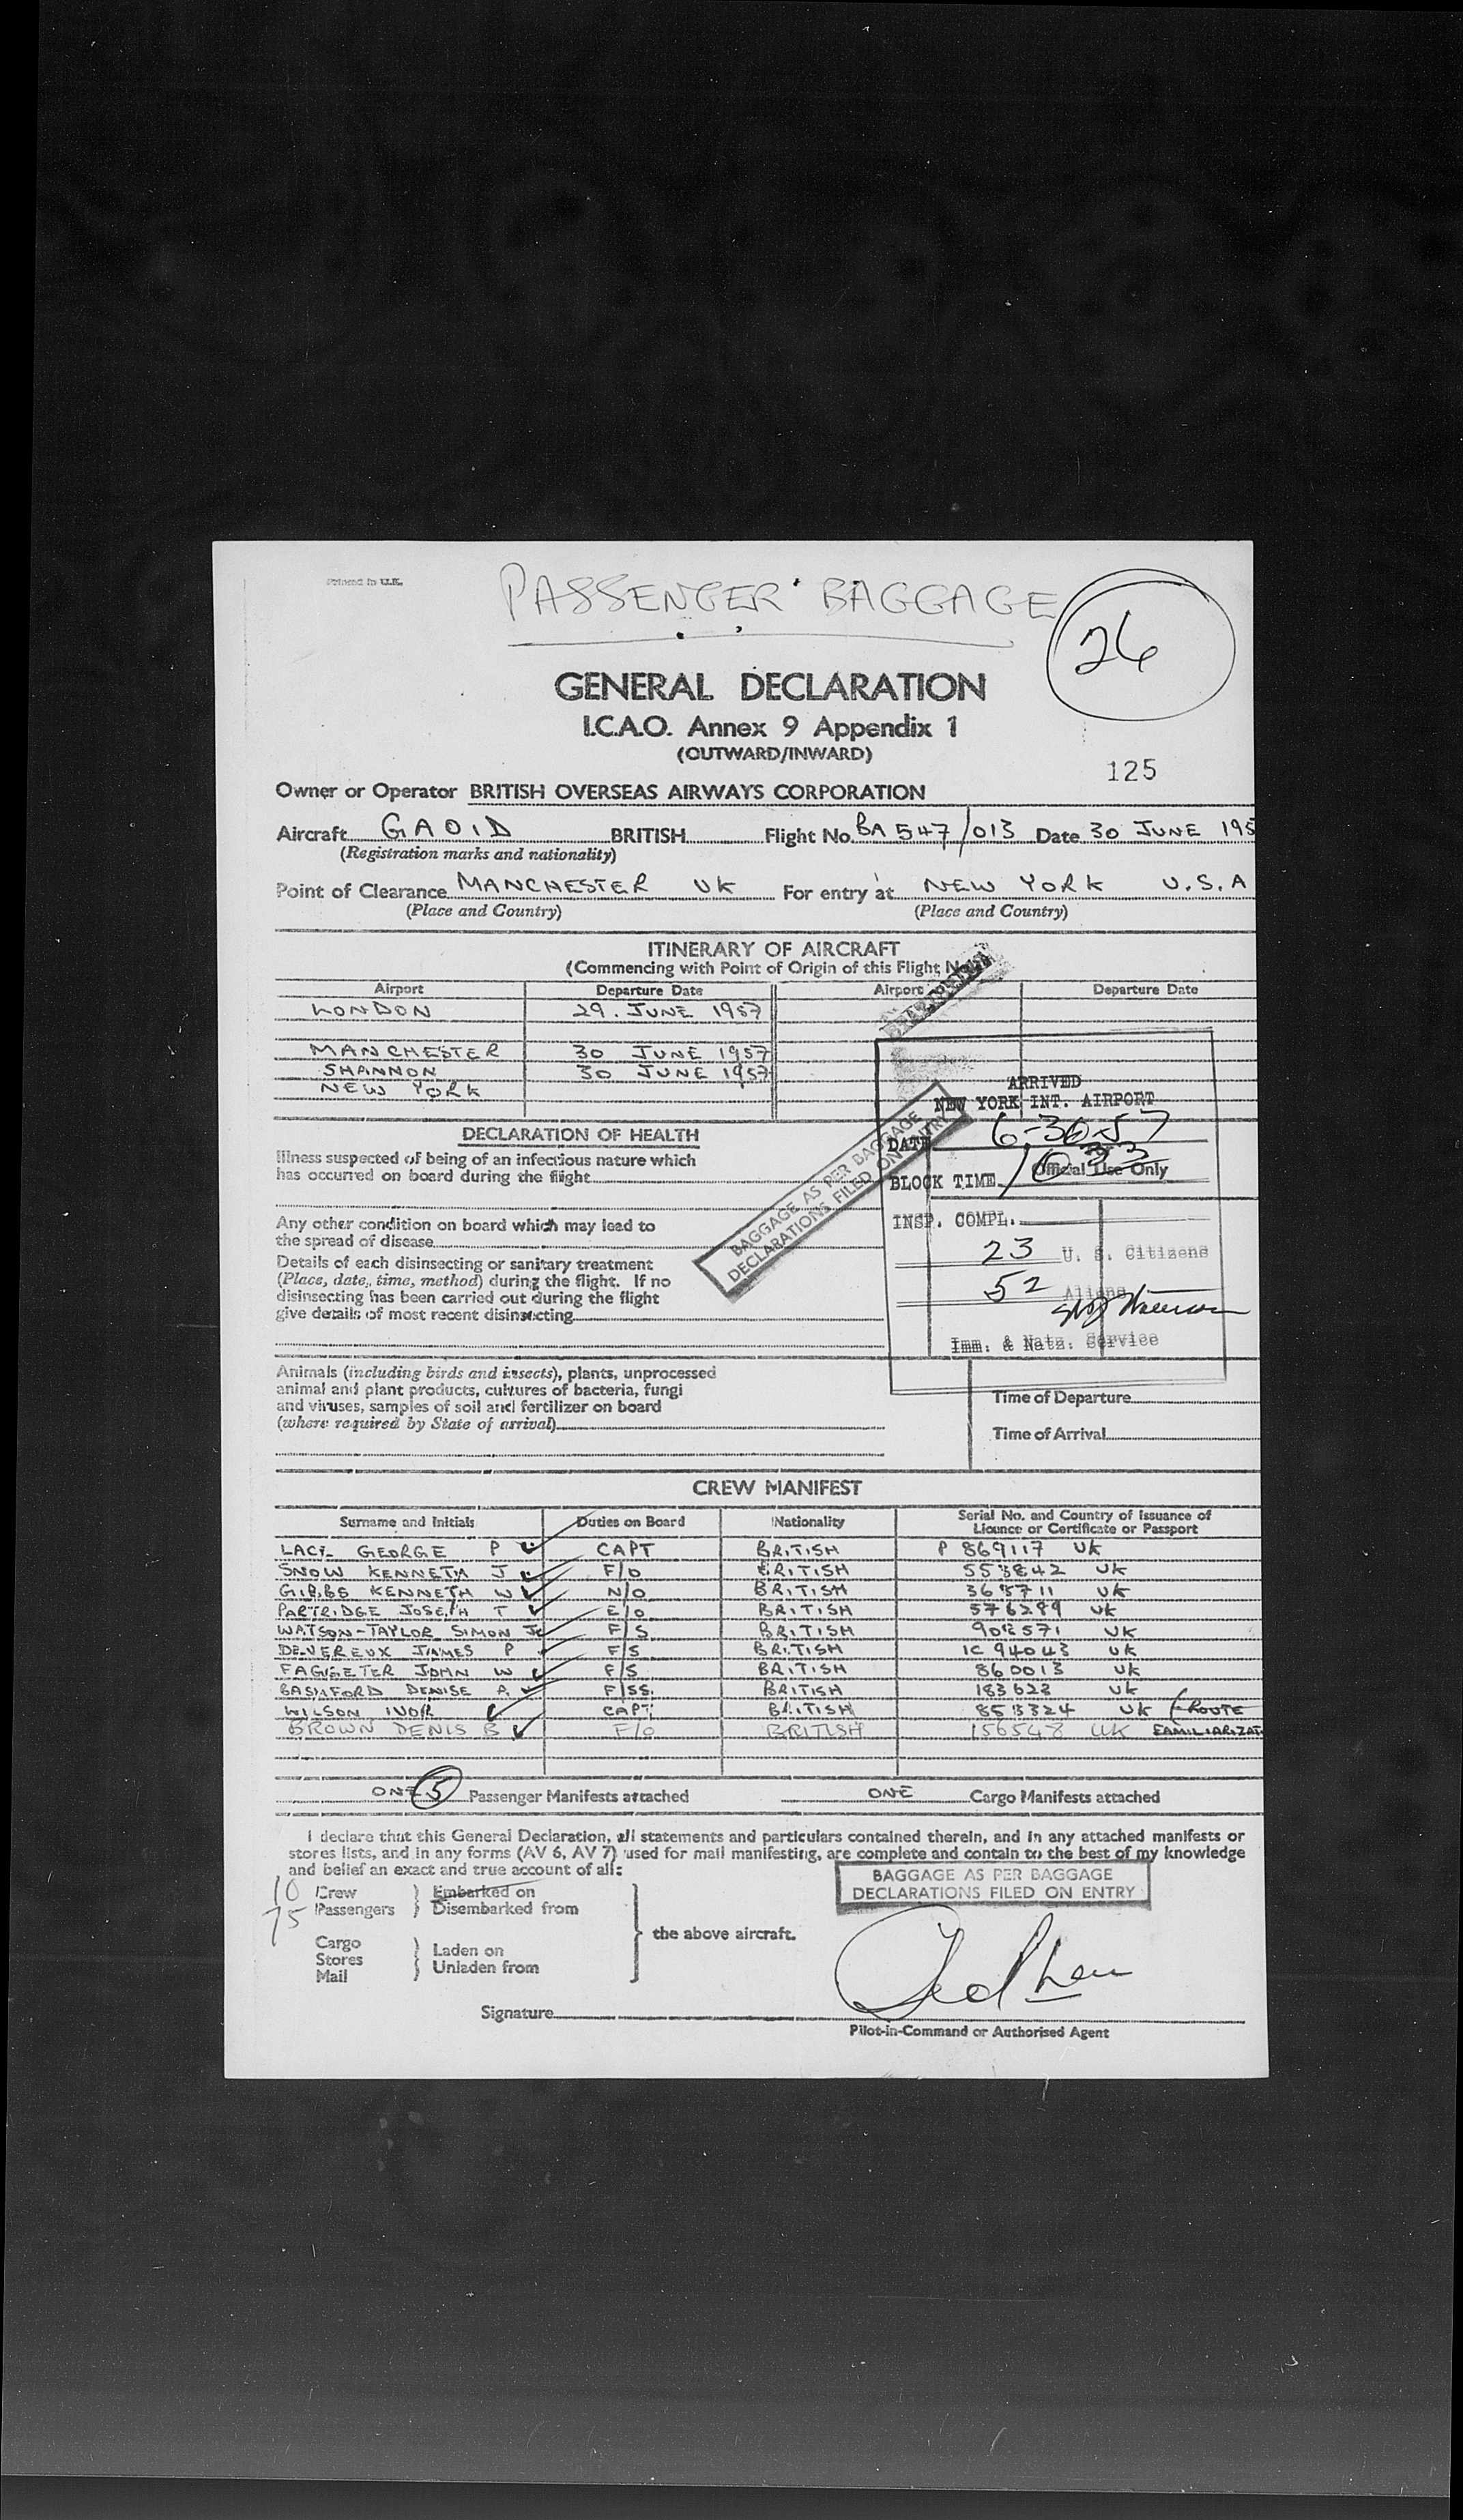 Printed in U.K.
PASSENGER BAGGAGE
26
GENERAL DECLARATION
I.C.A.O. Annex 9 Appendix 1
(OUTWARD/INWARD)
125
Owner or Operator BRITISH OVERSEAS AIRWAYS CORPORATION
Aircraft GAOID BRITISH Flight No. BA 547/013 Date 30 JUNE 195
(Registration marks and nationality)
Point of Clearance MANCHESTER UK For entry at NEW YORK U.S.A
(Place and Country) (Place and Country)
ITINERARY OF AIRCRAFT
(Commencing with Point of Origin of this Flight
Airport Departure Date Airport Departure Date
LONDON 29. JUNE 1957
MANCHESTER 30 JUNE 1957
SHANNON 30 JUNE 1957
NEW YORK
ARRIVED
NEW YORK INT. AIRPORT
DATE 6-30-57
BLOCK TIME 1033
Official Use Only
INSP. COMPL.
23 U. S. Citizens
52 Aliens
Imm. & Natz. Service
BAGGAGE AS PER BAGGAGE
DECLARATIONS FILED ON ENTRY
DECLARATION OF HEALTH
Illness suspected of being of an infectious nature which
has occurred on board during the flight
Any other condition on board which may lead to
the spread of disease
Details of each disinsecting or sanitary treatment
(Place, date, time, method) during the flight. If no
disinsecting has been carried out during the flight
give details of most recent disinsecting
Animals (including birds and insects), plants, unprocessed
animal and plant products, cultures of bacteria, fungi
and viruses, samples of soil and fertilizer on board
(where required by State of arrival)
Time of Departure
Time of Arrival
CREW MANIFEST
Surname and Initials Duties on Board Nationality Serial No. and Country of Issuance of
Licence or Certificate or Passport
GEORGE P CAPT BRITISH P 869117 UK
SNOW KENNETH J F/O BRITISH 553842 UK
GIBBS KENNETH W N/O BRITISH UK
PARTRIDGE JOSEPH T E/O BRITISH 576299 UK
WATSON-TAYLOR SIMON J F/S BRITISH UK
DEVEREUX JAMES P F/S BRITISH 1C 94043 UK
JOHN W F/S BRITISH 860013 UK
DENISE A F/SS. BRITISH UK
WILSON IVOR CAPT BRITISH 853324 UK (ROUTE
BROWN DENIS B F/O BRITISH 156548 UK FAMILIARIZAT
ONE 5 Passenger Manifests attached ONE Cargo Manifests attached
I declare that this General Declaration, all statements and particulars contained therein, and in any attached manifests or
stores lists, and in any forms (AV 6, AV 7) used for mail manifesting, are complete and contain to the best of my knowledge
and belief an exact and true account of all:
BAGGAGE AS PER BAGGAGE
DECLARATIONS FILED ON ENTRY
10 Crew Embarked on
75 Passengers Disembarked from
the above aircraft.
Cargo
Stores Laden on
Mail Unladen from
Signature
Pilot-in-Command or Authorised Agent